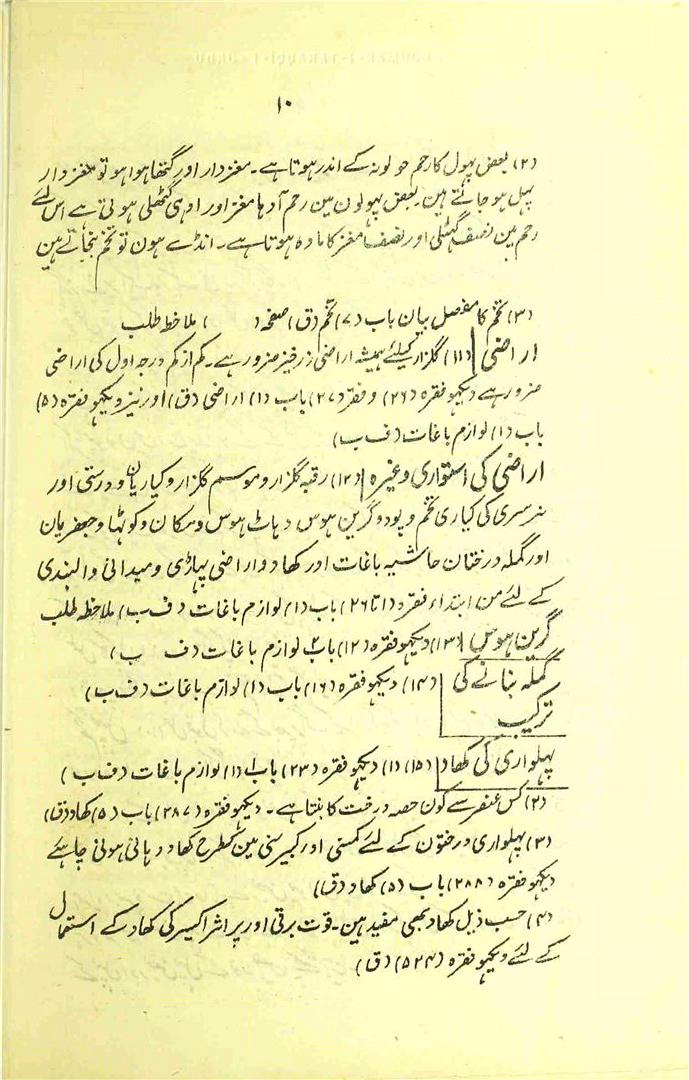 ۱۰
(۲) بعض پہول کا رحم جو لونہ کے اندر ہوتا ہے۔ مغز دار اور گتھا ہوا ہو تو مغز دار
پہل ہو جاتے ہین۔ بعض پہولون مین رحم آدہا مغز اور ادہی گٹھلی ہوتی ہے اس لئے
رحم مین نصف گہٹلی اور نصف مغز کا مادہ ہوتا ہے۔ انڈے ہون تو تخم بنجاتے ہین
(۳) تخم کا مفصل بیان باب (۷) تخم (ق) صفحہ ( ) ملاخط طلب
اراضی (۱۱) گلزار کیلئے ہمیشہ اراضی زرخیز ضرور ہے۔ کم از کم درجہ اول کی اراضی
ضرور ہے دیکہو فقرہ (۲۶) و فقرہ (۲۷) باب (۱) اراضی (ق) اور نیز دیکہو فقرہ (۵)
باب (۱) لوازم باغات (ف ب)
اراضی کی استواری وغیرہ (۱۲) رقبہ گلزار و موسم گلزار و کیاریان و درستی اور
نرسری کی کیاری تخم و پود و گرین ہوس و ہاٹ ہوس و مکان و کوٹہا و جعفریان
اور گملہ درختان حاشیہ باغات اور کھاد و اراضی پہاڑی و میدانی و البندی
کے لئے من ابتداء فقرہ (۱ تا ۲۶) باب (۱) لوازم باغات (ف ب) ملاحظہ طلب
گرین ہوس (۱۳) دیکہو فقرہ (۱۲) باب ۲ لوازم باغات (ف ب)
گملہ بنانے کی (۱۴) دیکہو فقرہ (۱۶) باب (۱) لوازم باغات (ف ب)
ترکیب
پہلواری کی کھاد (۱۵) (۱) دیکہو فقرہ (۲۳) باب (۱) لوازم باغات (ف ب)
(۲) کس عنصر سے کون حصہ درخت کا بنتا ہے۔ دیکہو فقرہ (۲۸۷) باب (۵) کھاد (ق)
(۳) پہلواری درختون کے لئے کمسنی اور کبیر سنی مین کسطرح کھاد دہائی ہونی چاہئے
دیکہو فقرہ (۲۸۸) باب (۵) کھاد (ق)
(۴) حسب ذیل کھاد بھی مفید ہین۔ قوت برقی اور پر اثر اکسیر کی کھاد کے استعمال
کے لئے دیکہو فقرہ (۵۲۴) (ق)